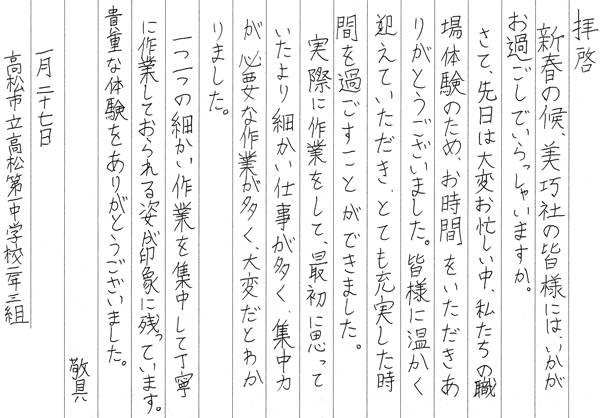 拝啓
新春の候、美巧社の皆様には、いかが
お過ごしでいらっしゃいますか。
さて、先日は大変お忙しい中、私たちの職
場体験のため、お時間をいただきあ
りがとうございました。皆様に温かく
迎えていただき、とても充実した時
間を過ごすことができました。
実際に作業をして、最初に思って
いたより細かい仕事が多く、集中力
が必要な作業が多く、大変だとわか
りました。
一つ一つの細かい作業を集中して丁寧
に作業しておられる姿が印象に残っています。
貴重な体験をありがとうございました。
敬具
一月二十七日
高松市立高松第一中学校二年三組